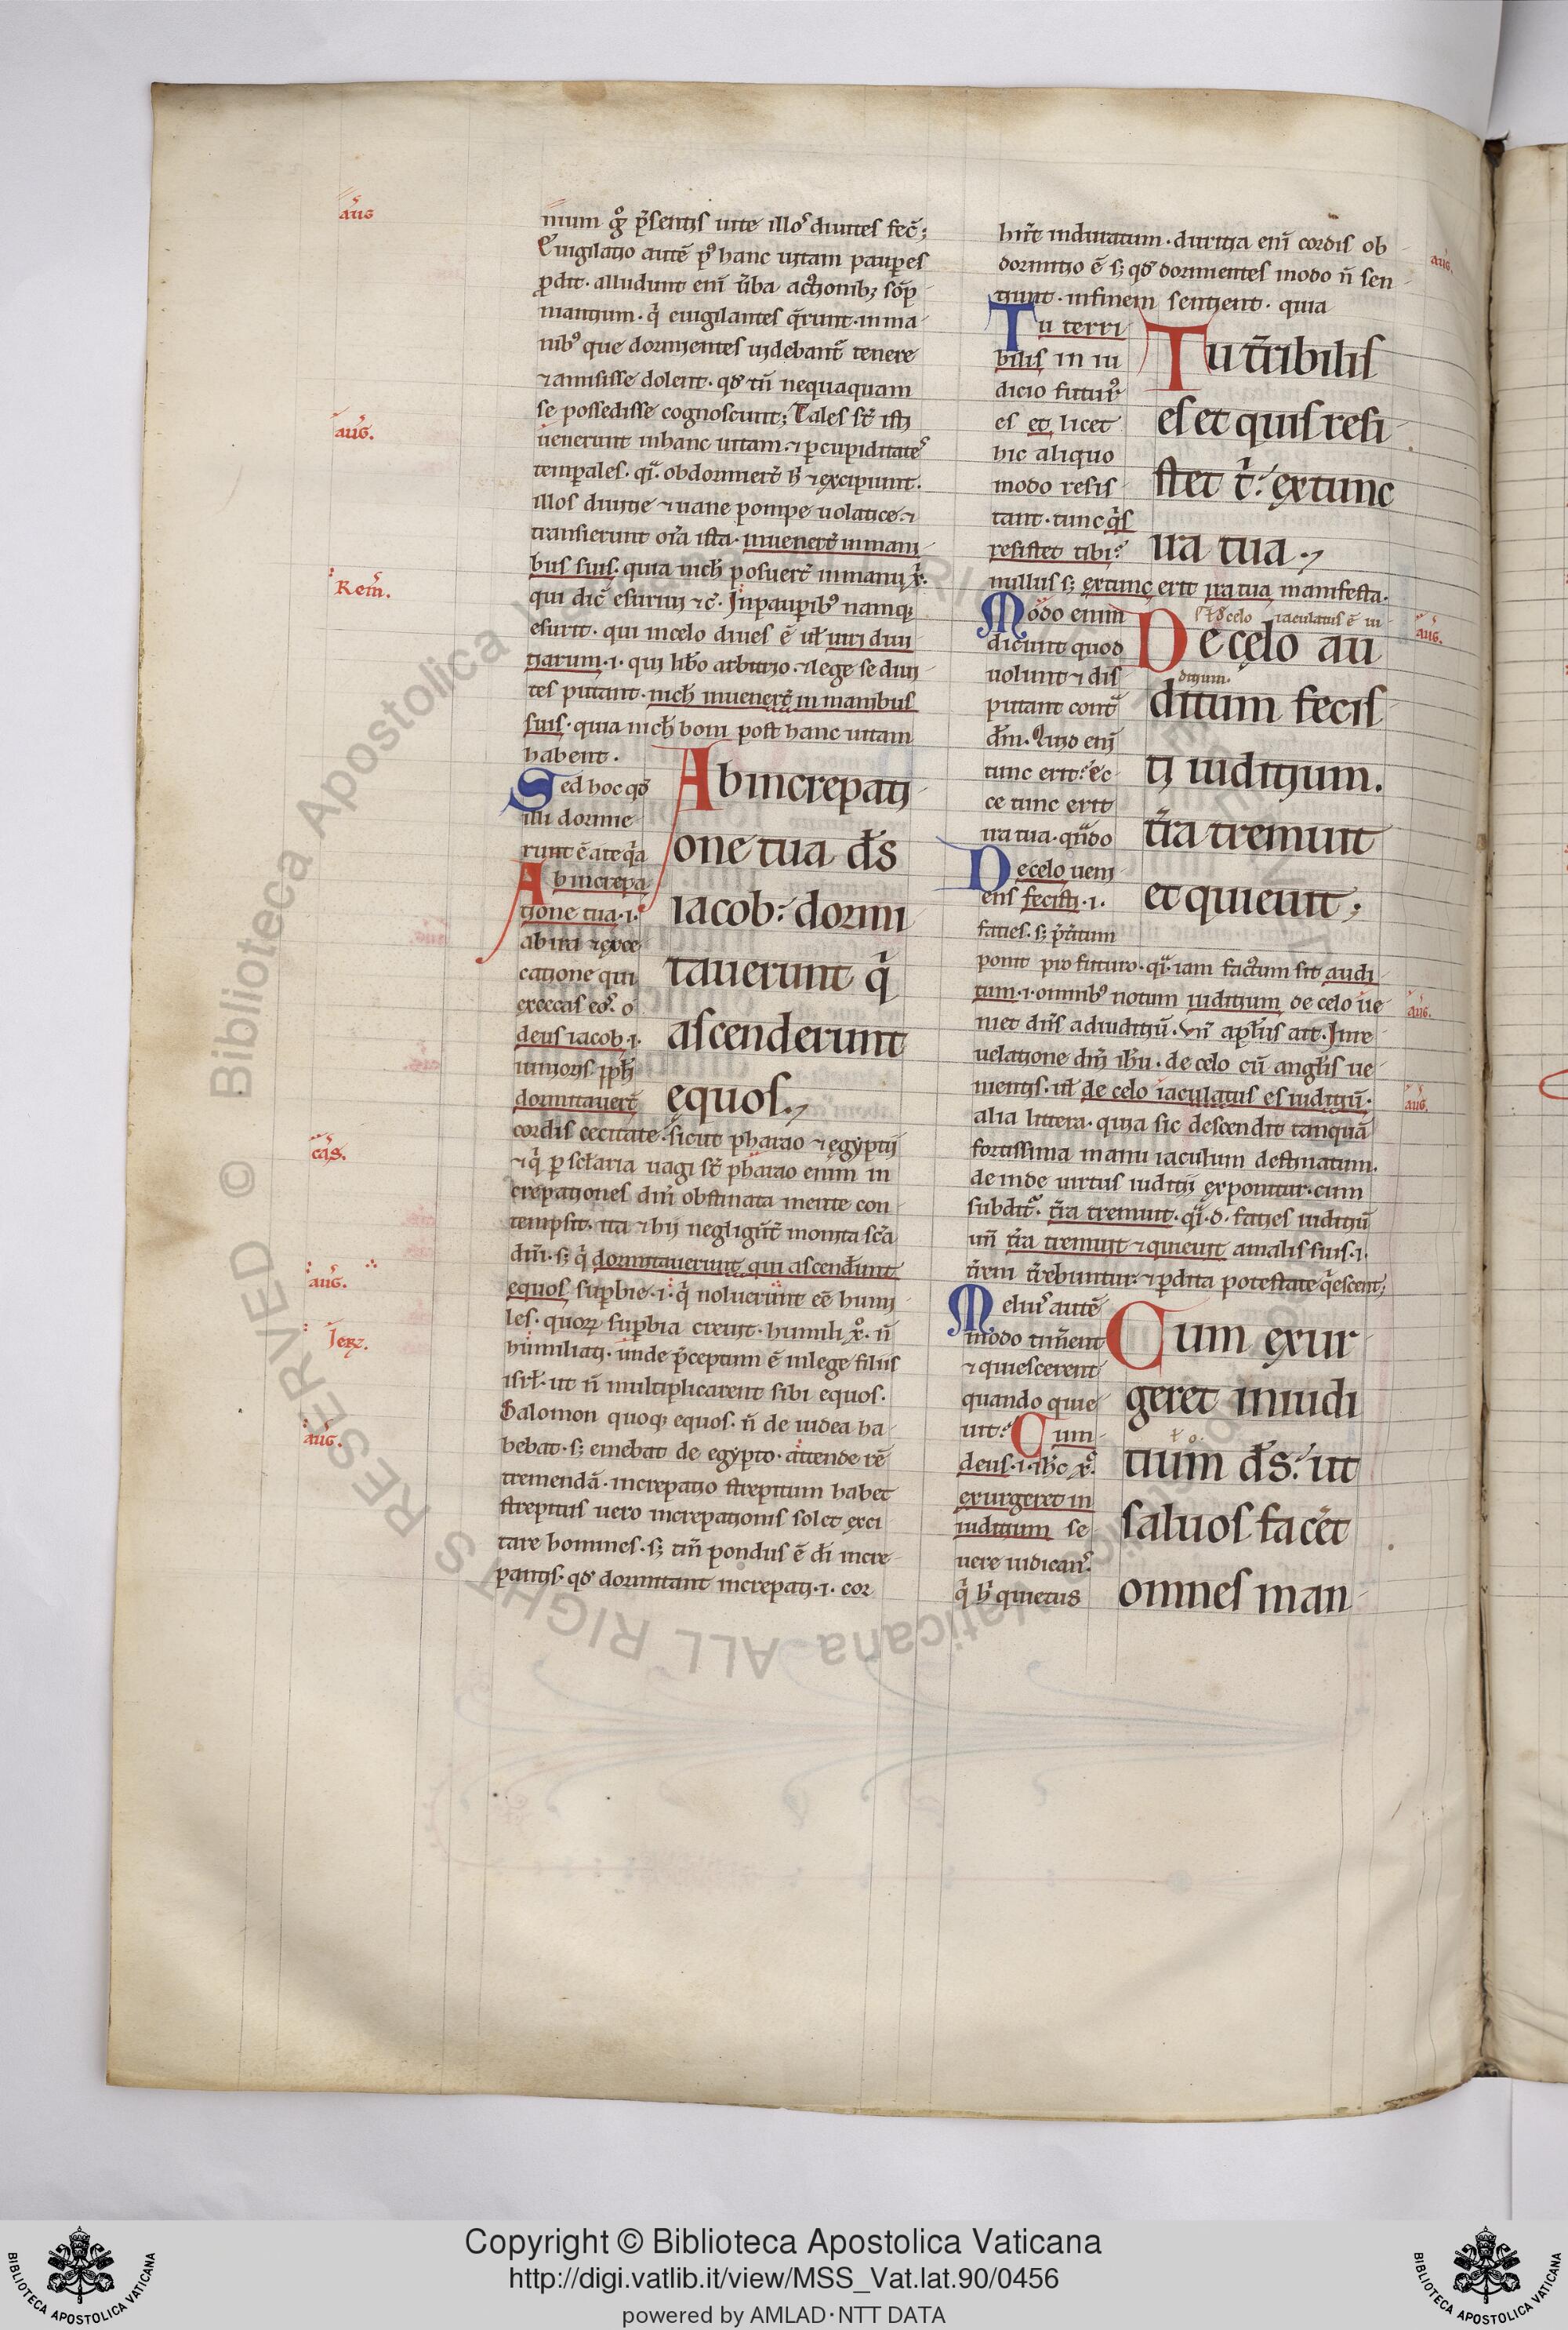 aug̃
mum g̊ p̃sentis uite illoꝰ diuites fec̃;
Euigilatio autẽ pꝰ hanc uitam paupes
ꝓdit. alludunt eni ũba actionibꝫ
mantium. q̃ euigilantes q̃runt in ma
nibꝰ que dormientes uidebant̃ tenere
⁊ amisisse dolent. qđ tñ nequaquam
se possedisse cognoscunt; Tales st̃ isti
aug̃.
uenerunt in hanc uitam. ⁊ p cupiditateˢ
temp̲ales. obdormiert̃ h̃ ⁊ excipiunt.
illos diuitie ⁊ uane pompe uolatice. ⁊
transierunt om̃ia ista. inuenert̃ in mani
bus suis. quia nich̃ posuert̃ in manu x̃.
Rem̃.
qui dic̃ esuriui ⁊c̃. In paupibꝰ namqꝫ
esurit. qui in celo diues ẽ uł uiri diui
tiarum .i. qui libo arbitrio. ⁊ lege se diui
tes putant. nich̃ inuenert̃ in manibus
suis. quia nich̃ boni post hanc uitam
habent.
Sed hoc qđ
illi dormie
runt ẽ a te q̃a
Ab increpa
tione tua .i.
ab ira ⁊ exce
catione qui
execcas eoˢ. o
deus iacob .i.
iunioris pp̃łi
dormitauert̃
Ab increpati
one tua d̃s
iacob: dormi
tauerunt q̃
ascenderunt
equos.
cordis cecitate. sicut pharao ⁊ egyptij
cas̃.
⁊ q̃ p sc̃laria uagi st̃ pharao enim in
crepationes dñi obstinata mente con
tempsit. ita ⁊ hij negligũt monita sc̃a
dñi. sꝫ q̃ dormitauerunt qui ascend̃unt
aug̃.
equos supbie .i. q̃ noluerunt ee humi
les. quoꝝ supbia creuit. humili x̊. ñ
Ier̃.
humiliati. unde p̃ceptum ẽ in lege filiis
isrł. ut ñ multiplicarent sibi equos.
Salomon quoqꝫ equos. ñ de iudea ha
aug̃.
bebat. sꝫ emebat de egypto. attende rẽ
tremendã. increpatio strepitum habet
strepitus uero increpationis solet exci
tare homines. sꝫ tm̃ pondus ẽ di incre
pantis. qđ dormitant increpati .i. cor
hñt induratum. duritia eni cordis ob
aug̃.
dormitio ẽ sꝫ qđ dormientes modo ñ sen
tiunt. in finem sentient. quia
Tu terri
bilis in iu
dicio futurꝰ
es et licet
hic aliquo
modo resis
tant. tunc q̃s
resistet tibi?
Tu t̃ribilis
es et quis resi
stet t̃: ex tunc
ira tua.
nullus sꝫ ex tunc erit ira tua manifesta.
Modo enim
dicunt quod
uolunt ⁊ dis
putant contª
dm̃. Quo eni
tunc erit? ec
ce tunc erit
ira tua. qñdo
De celo ueni
ens fecisti .i.
facies. sꝫ p̃t̃itum
de celo iaculatus ẽ iu
ditium.
aug̃.
De celo au
ditum fecis
ti iuditium.
t̃ra tremuit
et quieuit;
ponit pro futuro. qª. iam factum sit audi
tum .i. omnibꝰ notum iuditium de celo ue
aug̃.
niet dñs ad iuditiũ. Vñ apłus ait. In re
uelatione dñi ih̃u. de celo cũ angłis ue
nientis. uł de celo iaculatus es iuditiũ.
aug̃.
alia littera. quia sic descendit tanquã
fortissima manu iaculum destinatum.
deinde uirtus iuditij exponitur. cum
subditᷣ. t̃ra tremuit. qª. d. facies iuditiũ
uñ t̃ra tremuit ⁊ quieuit a malis suis .i.
t̃reni t̃rebuntur. ⁊ pdita potestate q̃escent;
Meliꝰ autẽ
modo timent
⁊ quiescerent
quando quie
uit? Cum
deus .i. ih̃c x̊.
exurgeret in
iuditium se
uere iudicanˢ.
q̃ h̃ quietus
Cum exur
geret in iudi
tium d̃s: ut
saluos facet̃
omnes man
© Biblioteca Apostolica Vaticana ALL RIGHTS RESERVED
Copyright © Biblioteca Apostolica Vaticana
http://digi.vatlib.it/view/MSS_Vat.lat.90/0456
powered by AMLAD·NTT DATA
BIBLIOTECA APOSTOLICA VATICANA
BIBLIOTECA APOSTOLICA VATICANA